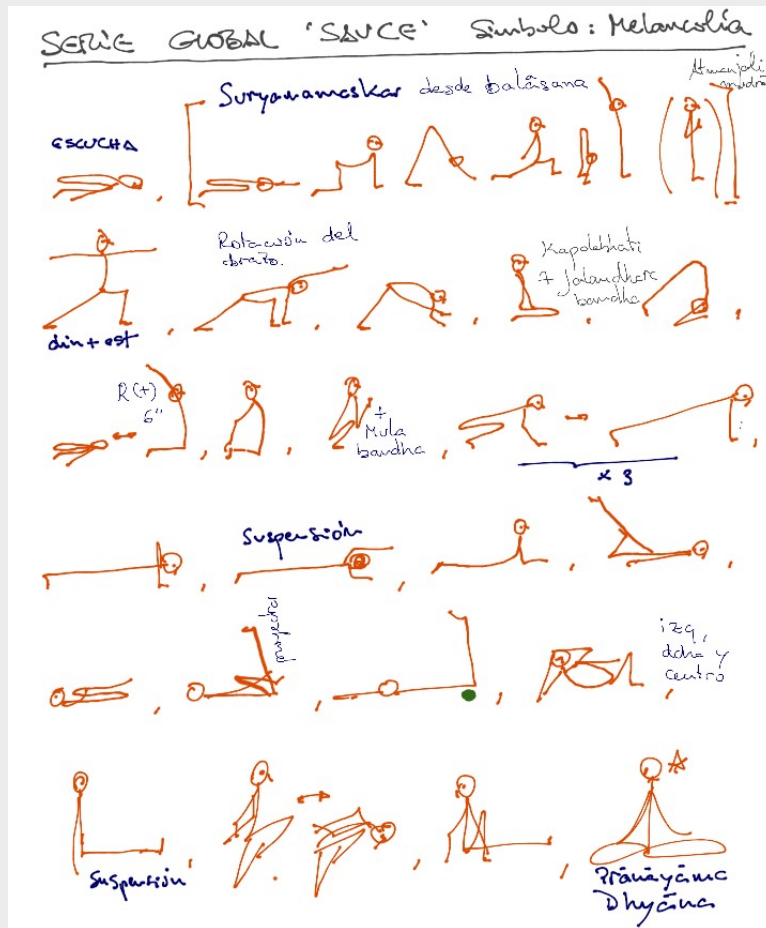 SERIE GLOBAL 'SAUCE' Símbolo: Melancolía
Suryanamaskar desde balāsana
Atmanjali
mudrā
ESCUCHA
Rotación del
brazo.
Kapalabhati
+ Jālandhara
bandha
din + est
R(+)
6"
+
Mula
bandha
x 3
Suspensión
izq,
dcha y
centro
Suspensión
Prānāyāma
Dhyāna